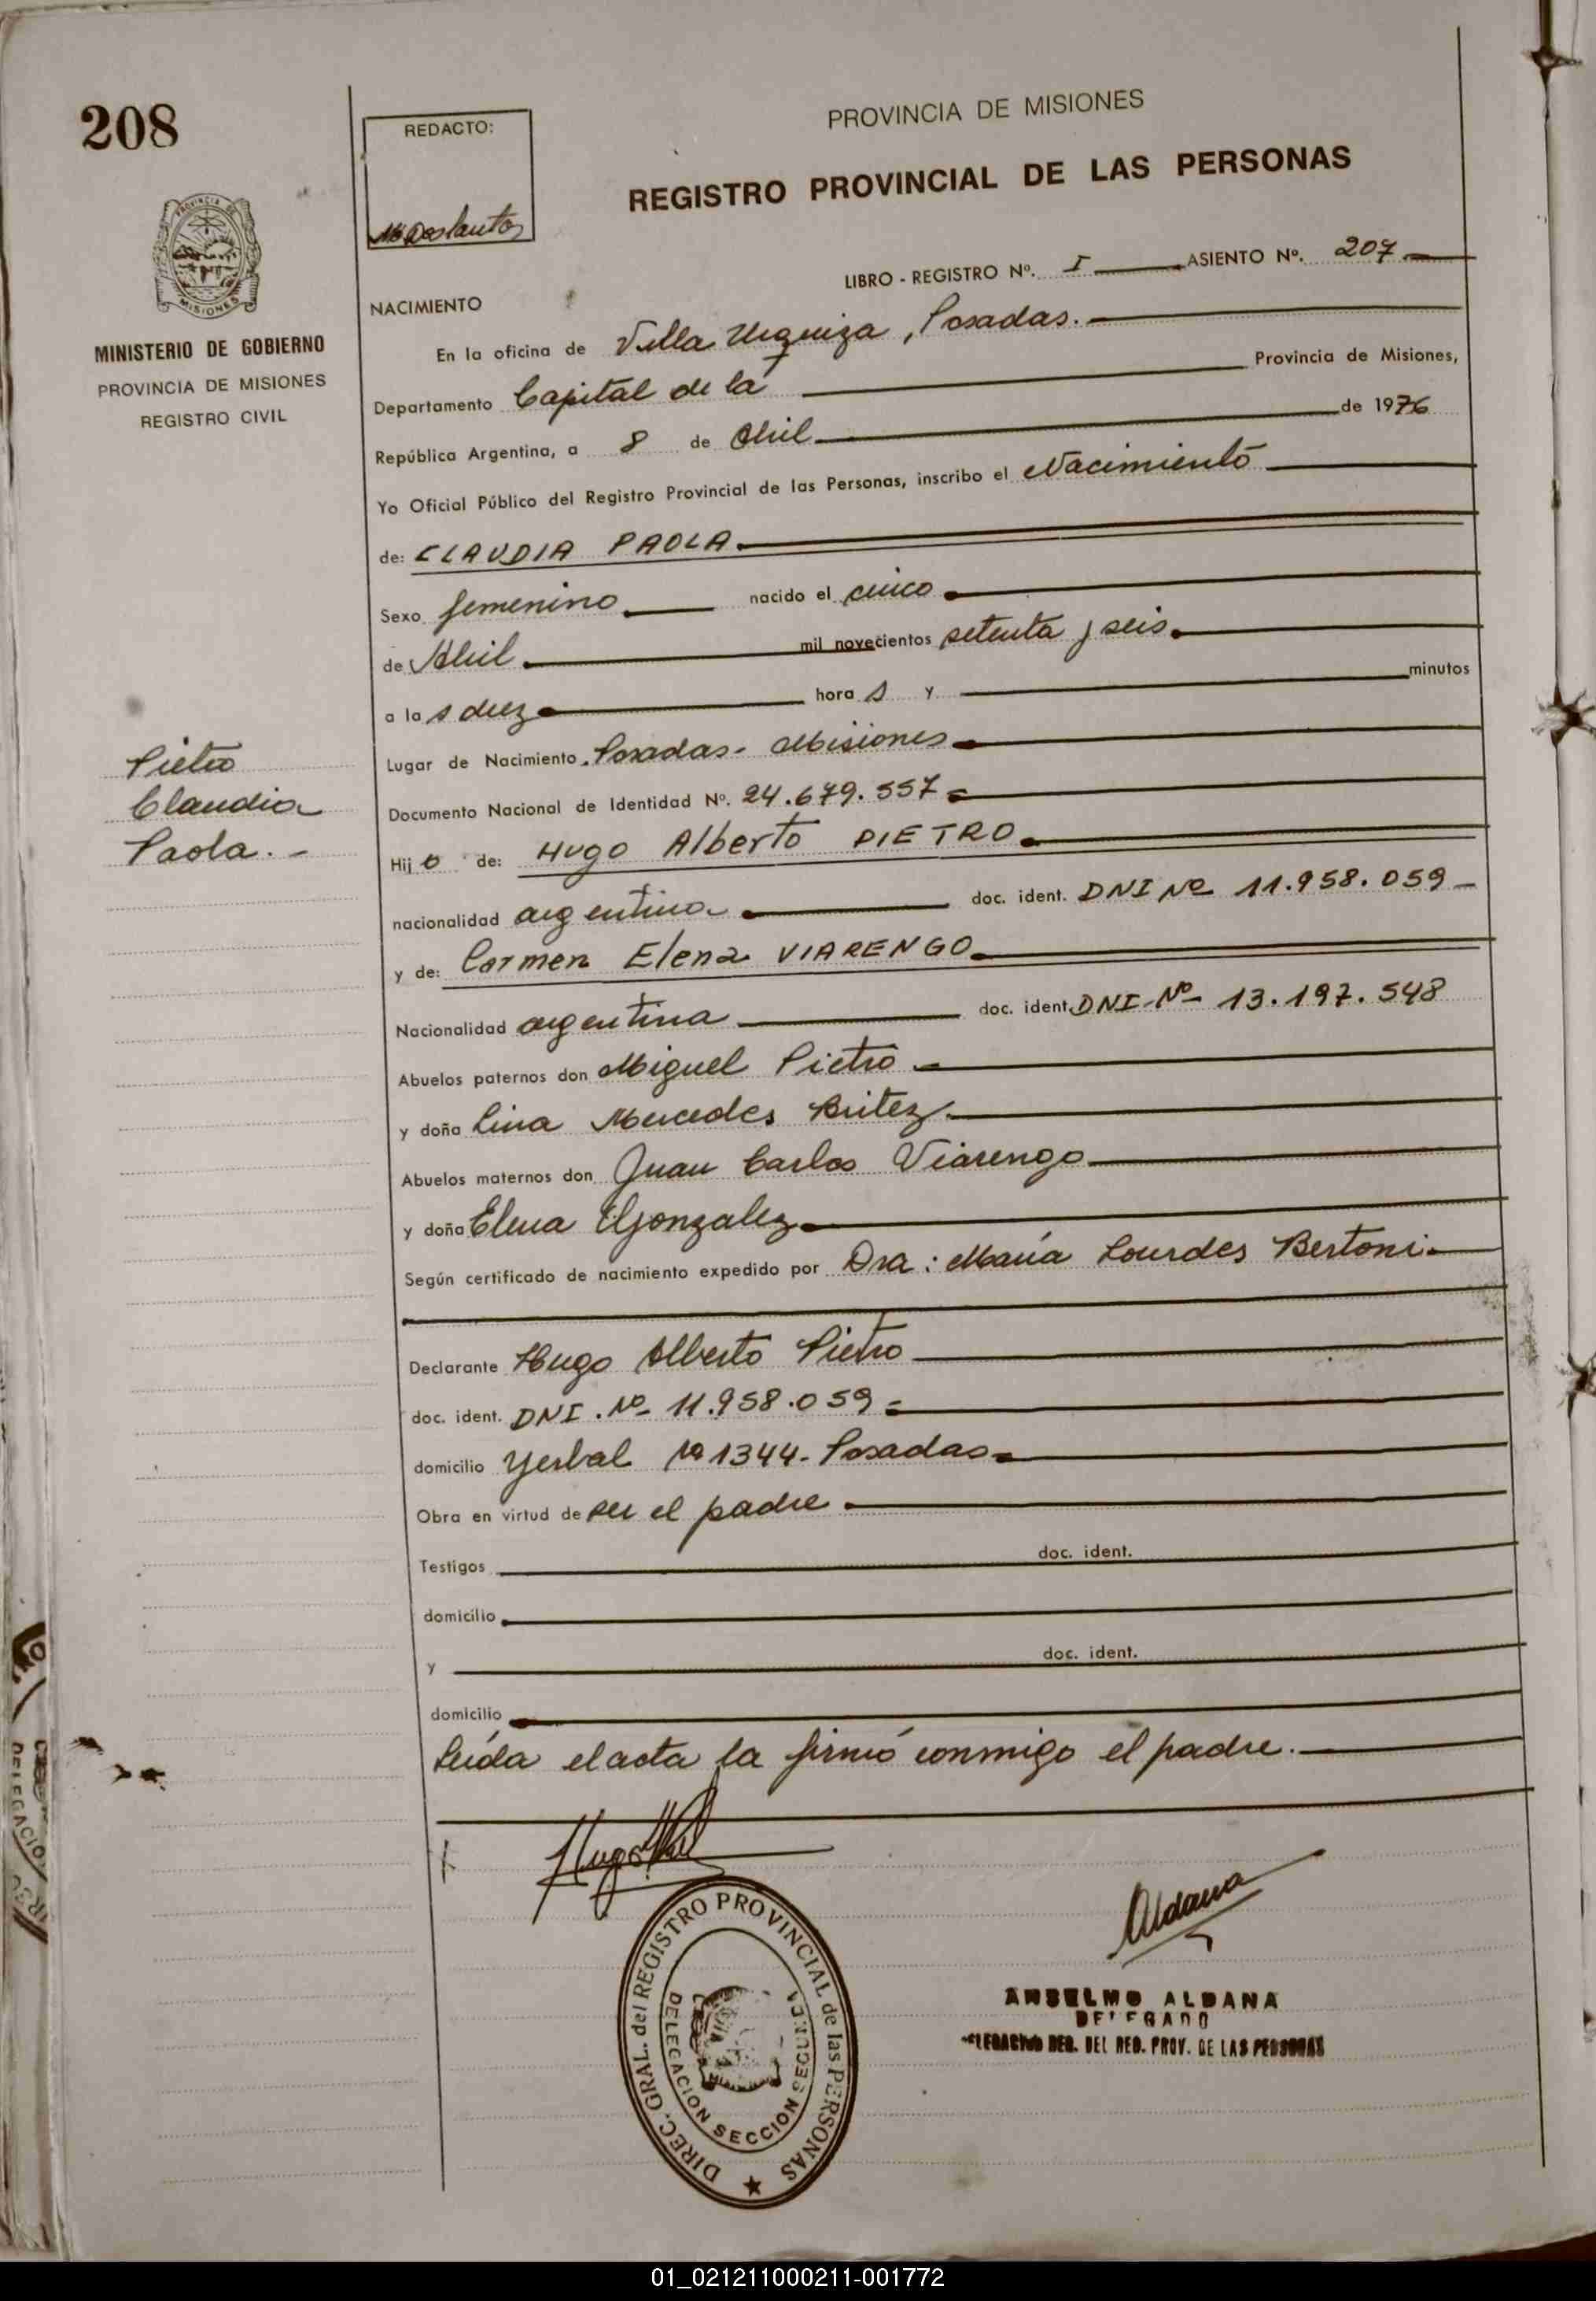 208
REDACTO:
PROVINCIA DE MISIONES
REGISTRO PROVINCIAL DE LAS PERSONAS
LIBRO - REGISTRO Nº. I ASIENTO Nº. 207
MINISTERIO DE GOBIERNO
PROVINCIA DE MISIONES
REGISTRO CIVIL
NACIMIENTO
En la oficina de Villa Urquiza, Posadas.
Departamento Capital de la Provincia de Misiones,
República Argentina, a 8 de Abril de 1976
Yo Oficial Público del Registro Provincial de las Personas, inscribo el Nacimiento
de: CLAUDIA PAOLA
Sexo femenino nacido el cinco
de Abril mil novecientos setenta y seis
a la s diez hora s y minutos
Lugar de Nacimiento Posadas - Misiones
Documento Nacional de Identidad Nº. 24.679.557
Pietro
Claudia
Paola. -
Hij o de: Hugo Alberto PIETRO
nacionalidad argentina doc. ident. DNI Nº 11.958.059
y de: Carmen Elena VIARENGO
Nacionalidad argentina doc. ident. DNI Nº 13.197.548
Abuelos paternos don Miguel Pietro
y doña Lina Mercedes Britez
Abuelos maternos don Juan Carlos Viarengo
y doña Elena Gonzalez
Según certificado de nacimiento expedido por Dra: María Lourdes Bertoni
Declarante Hugo Alberto Pietro
doc. ident. DNI. Nº 11.958.059
domicilio Yerbal Nº 1344 - Posadas
Obra en virtud de ser el padre
Testigos doc. ident.
domicilio
y doc. ident.
domicilio
Leída el acta la firmó conmigo el padre.
Aldana
DIREC. GRAL. del REGISTRO PROVINCIAL de las PERSONAS
DELEGACION SECCION SEGUNDA
ANSELMO ALDANA
DELEGADO
DEL REG. PROV. DE LAS PERSONAS
01_021211000211-001772